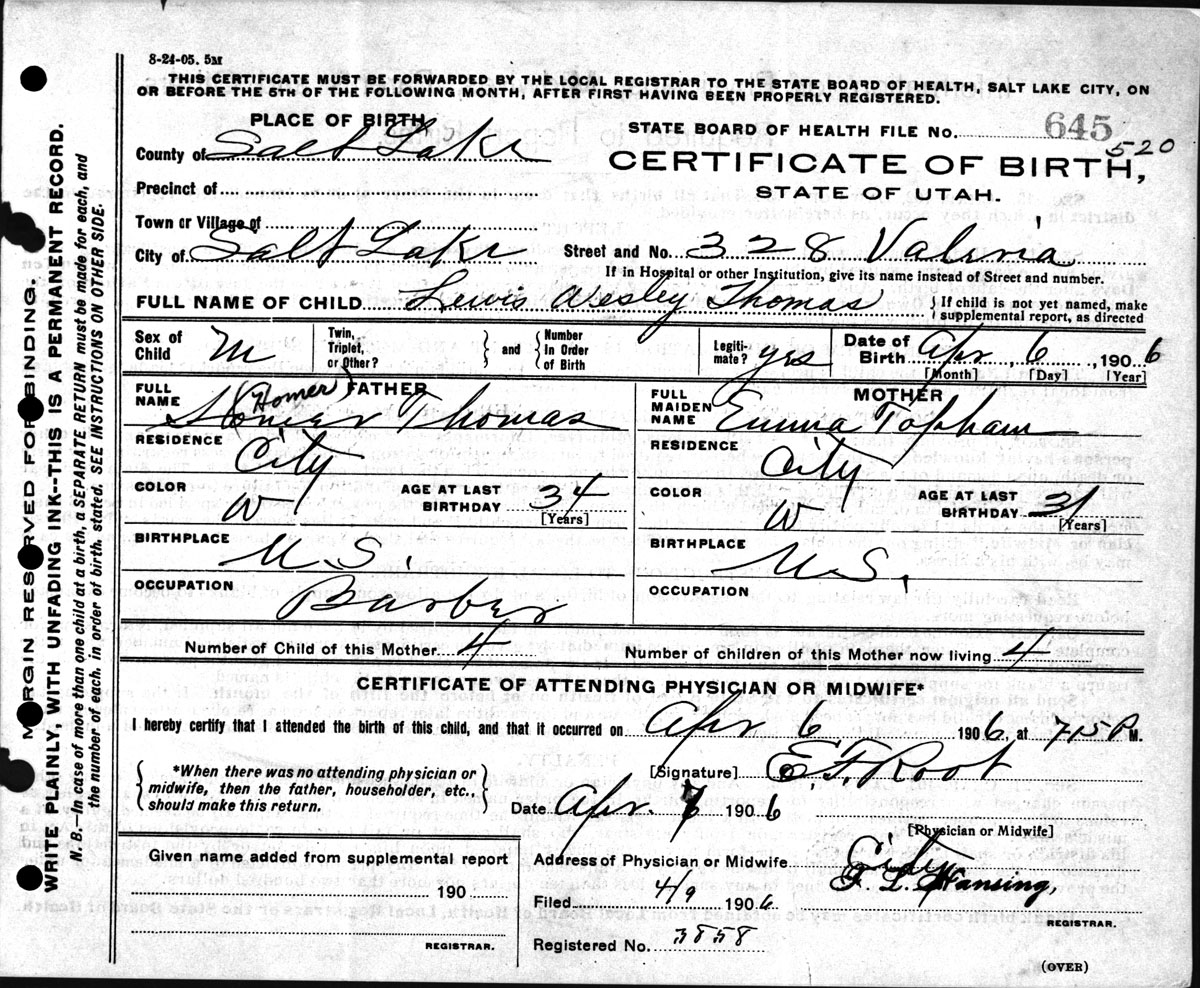 8-24-05. 5M
THIS CERTIFICATE MUST BE FORWARDED BY THE LOCAL REGISTRAR TO THE STATE BOARD OF HEALTH, SALT LAKE CITY, ON
OR BEFORE THE 5TH OF THE FOLLOWING MONTH, AFTER FIRST HAVING BEEN PROPERLY REGISTERED.
PLACE OF BIRTH
STATE BOARD OF HEALTH FILE No. 645
520
County of Salt Lake
CERTIFICATE OF BIRTH,
Precinct of
STATE OF UTAH.
Town or Village of
City of Salt Lake Street and No. 328 Valeria
If in Hospital or other Institution, give its name instead of Street and number.
FULL NAME OF CHILD Lewis Wesley Thomas { If child is not yet named, make
supplemental report, as directed
Sex of Child M Twin, Triplet, or Other? } and { Number In Order of Birth Legiti-mate? yes Date of Birth Apr 6, 1906
[Month] [Day] [Year]
FULL NAME FATHER (Homer) Thomas
FULL MAIDEN NAME MOTHER Emma Topham
RESIDENCE City
RESIDENCE City
COLOR W AGE AT LAST BIRTHDAY 34 [Years]
COLOR W AGE AT LAST BIRTHDAY 31 [Years]
BIRTHPLACE U.S.
BIRTHPLACE U.S.
OCCUPATION Barber
OCCUPATION
Number of Child of this Mother 4 Number of children of this Mother now living 4
CERTIFICATE OF ATTENDING PHYSICIAN OR MIDWIFE*
I hereby certify that I attended the birth of this child, and that it occurred on Apr 6 1906, at 715 P M.
{ *When there was no attending physician or
midwife, then the father, householder, etc.,
should make this return. }
[Signature] E. F. Root
Date Apr. 7 1906
[Physician or Midwife]
Given name added from supplemental report
190
REGISTRAR.
Address of Physician or Midwife City
Filed 4/9 1906
REGISTRAR.
Registered No. 3858
(OVER)
MARGIN RESERVED FOR BINDING.
WRITE PLAINLY, WITH UNFADING INK--THIS IS A PERMANENT RECORD.
N. B.—In case of more than one child at a birth, a SEPARATE RETURN must be made for each, and
the number of each, in order of birth, stated. SEE INSTRUCTIONS ON OTHER SIDE.